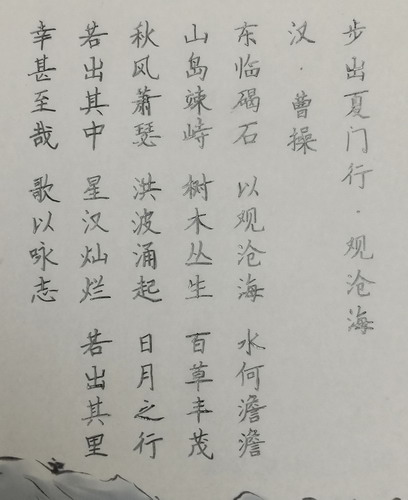 步出夏门行·观沧海
汉·曹操
东临碣石 以观沧海 水何澹澹
山岛竦峙 树木丛生 百草丰茂
秋风萧瑟 洪波涌起 日月之行
若出其中 星汉灿烂 若出其里
幸甚至哉 歌以咏志